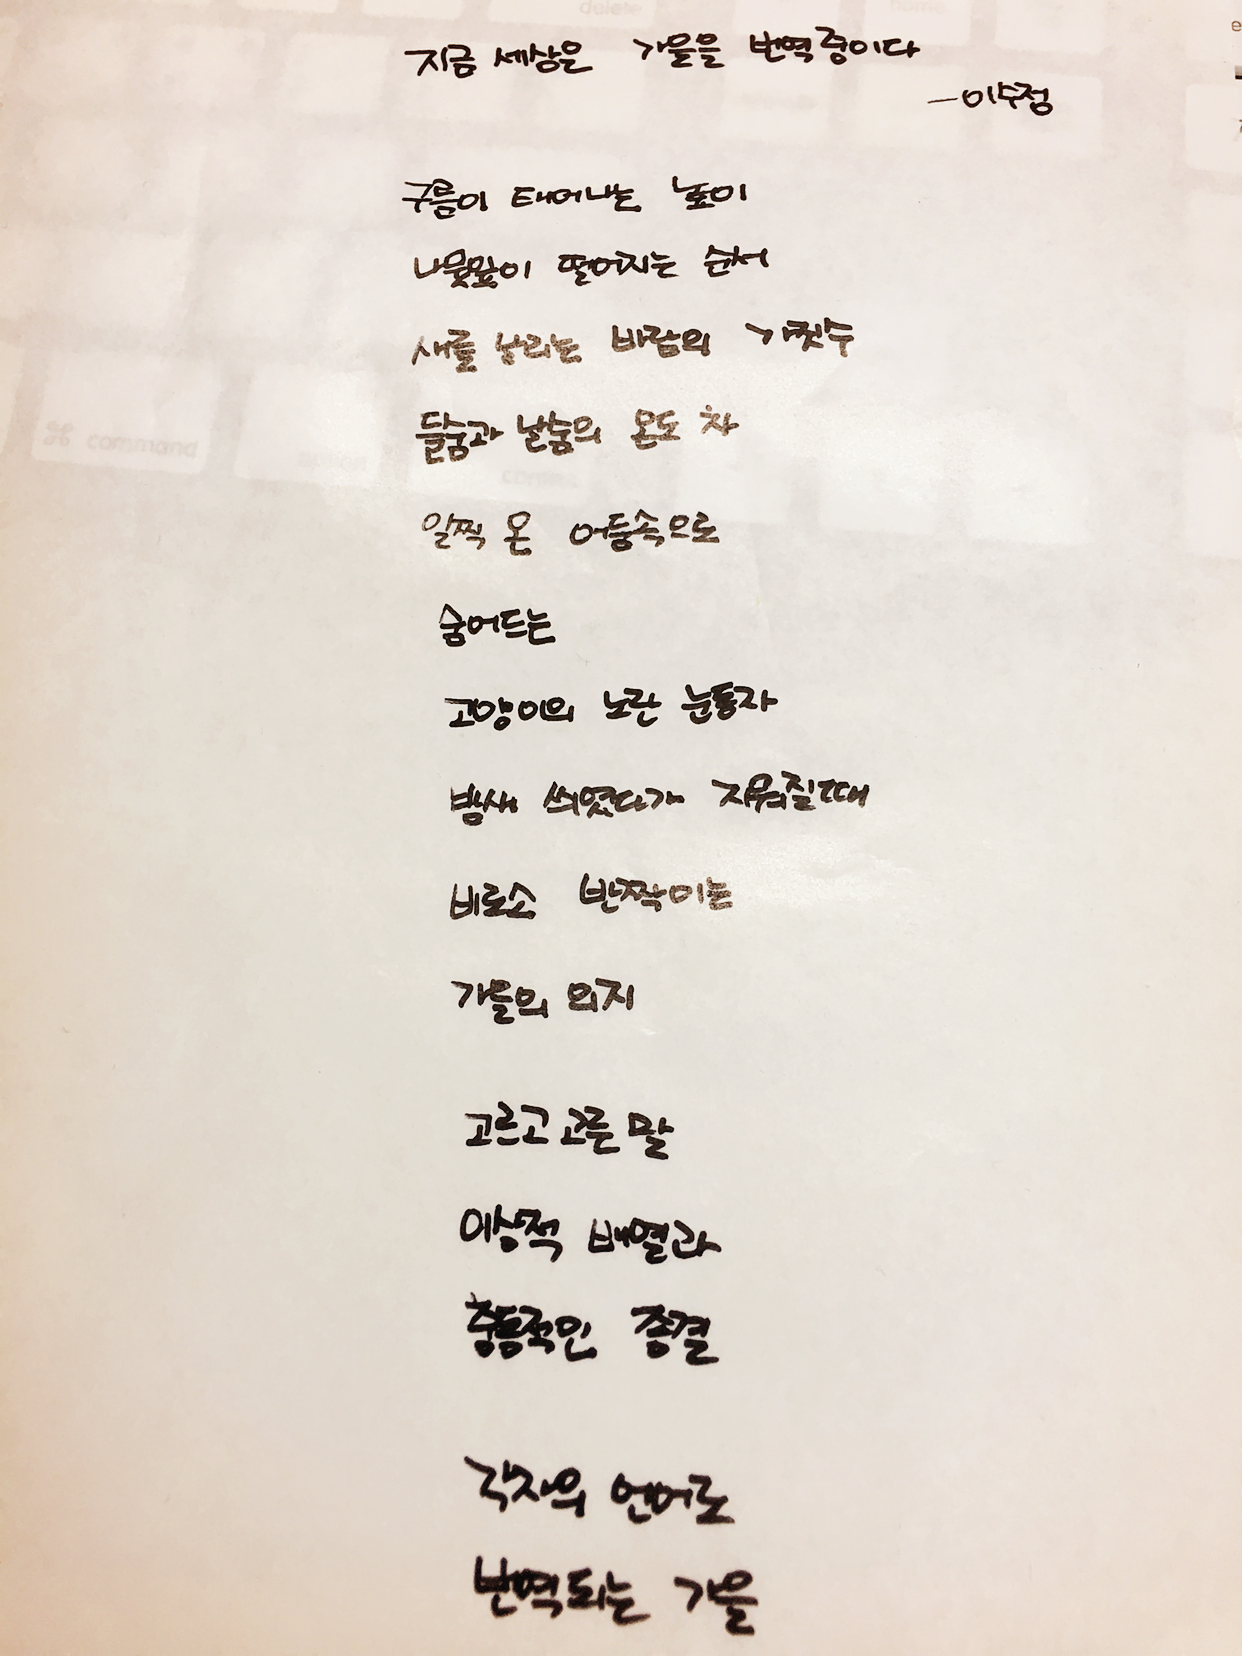 delete
home
지금 세상은 가을을 번역중이다
-이수정
구름이 태어나는 높이
나뭇잎이 떨어지는 순서
새를 날리는 바람의 가짓수
들숨과 날숨의 온도 차
⌘ command
option
control
일찍 온 어둠속으로
숨어드는
고양이의 노란 눈동자
밤새 씌였다가 지워질때
비로소 반짝이는
가을의 의지
고르고 고른 말
이상적 배열과
충동적인 종결
각자의 언어로
번역되는 가을